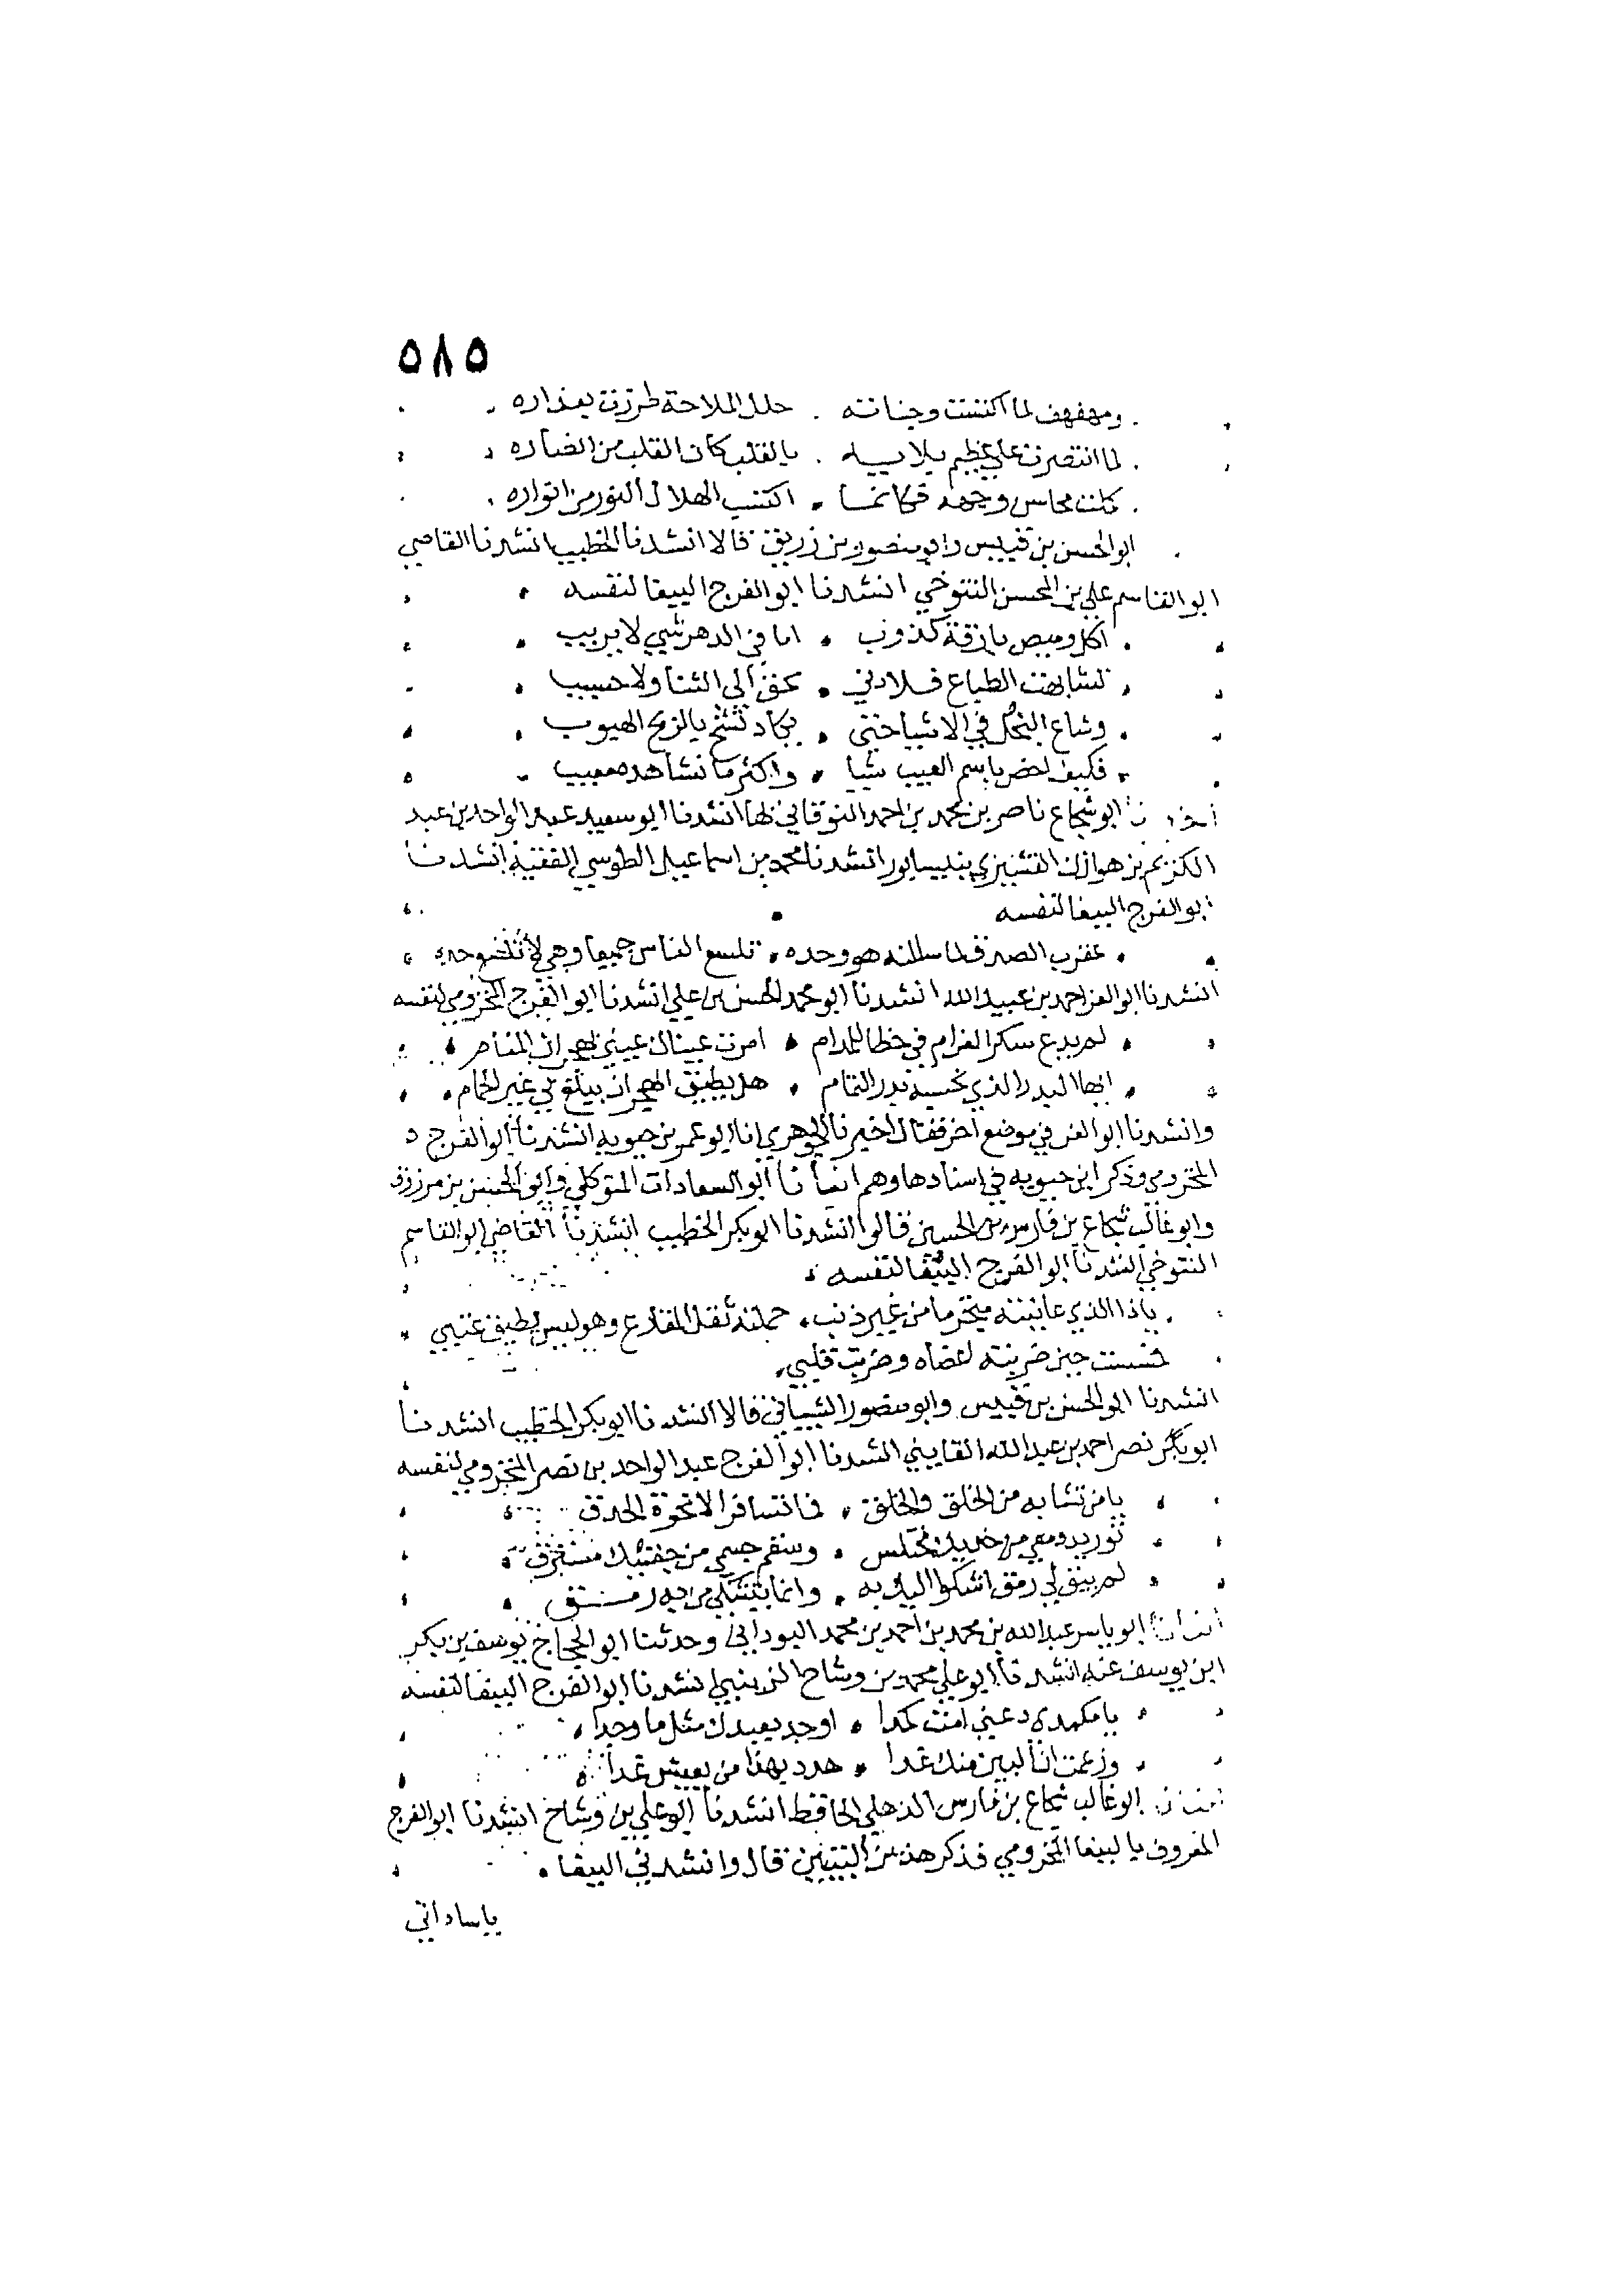 ٥٨٥
ومهفهف لما اكتست وجناته . حلل الملاحة طرزت بعذاره
لما انتصرت على عظيم بلابيه . بالقلب كان القلب من انصاره
كملت محاسن وجهه فكانما . اكتسب الهلال النور من انواره
ابو الحسن بن قبيس وابو منصور بن زريق قالا انشدنا الخطيب انشدنا القاضي
ابو القاسم علي بن المحسن التنوخي انشدنا ابو الفرج الببغا لنفسه
اكل وميض بارقة كذوب . اما في الدهر شي لا يريب
تشابهت الطباع فلا دني . يحن الى الثنا ولا حسيب
وشاع البخل في الاشيا حتى . يكاد تشح بالريح الهبوب
فكيف اخص باسم العيب شيا . واكثر ما نشاهده معيب
ابو شجاع ناصر بن محمد بن احمد النوقاني بها انشدنا ابو سعيد عبد الواحد بن عبد
الكريم بن هوازن القشيري بنيسابور انشدنا محمد بن اسماعيل الطوسي الفقيه انشدنا
ابو الفرج الببغا لنفسه
عقرب الصدق لما سالمته هو وحده . تلسع الناس جميعا وهي لا تلسع خده
انشدنا ابو العز احمد بن عبيد الله انشدنا ابو محمد الحسن بن علي انشدنا ابو الفرج المخزومي لنفسه
لم يدع سكر الغرام في حظا للمدام . امرت عيناك عيني بهجران المنام
ايها البدر الذي نحسبه بدر التمام . هل يطيق الهجر ان يبلغ بي غير الحمام
وانشدنا ابو العز في موضع اخر فقال اخبرنا الجوهري انا ابو عمر بن حيويه انشدنا ابو الفرج
المخزومي وذكر ابن حيويه في اسنادها وهم انبأنا ابو السعادات المتوكلي وابو الحسن بن مرزوق
وابو غالب شجاع بن فارس بن الحسين قالوا انشدنا ابو بكر الخطيب انشدنا القاضي ابو القاسم
التنوخي انشدنا ابو الفرج الببغا لنفسه
ياذا الذي عاتبته متجرما من غير ذنب . حملته ثقل المقارع وهو ليس يطيق عتبي
حين ضربته اعضاه وضربت قلبي
انشدنا ابو الحسن بن قبيس وابو منصور الشيباني قالا انشدنا ابو بكر الخطيب انشدنا
ابو بكر نصر احمد بن عبد الله القايني انشدنا ابو الفرج عبد الواحد بن نصر المخزومي لنفسه
يا من تشابه من الخلق والخلق . فما تسافر الا نحوه الحدق
توريد دمعي من خديك مختلس . وسقم جسمي من جفنيك مسترق
لم يبق لي رمق اشكو اليك به . وانما يتشكى من به رمق
ابو ياسر عبد الله بن محمد بن احمد بن محمد البوداني وحدثنا ابو الحجاج يوسف بن بكر
ابن يوسف عنه انشدنا ابو علي محمد بن وشاح الزينبي انشدنا ابو الفرج الببغا لنفسه
يا مكمدي دعني امت كمدا . اوجد بعبدك مثل ما وجدا
وزعمت ان البين منك غدا . هدد بهذا من يعيش غدا
ابو غالب شجاع بن فارس الذهلي الحافظ انشدنا ابو علي بن وشاح انشدنا ابو الفرج
المعروف بالببغا المخزومي فذكر هذين البيتين قال وانشدني الببغا
يا ساداتي